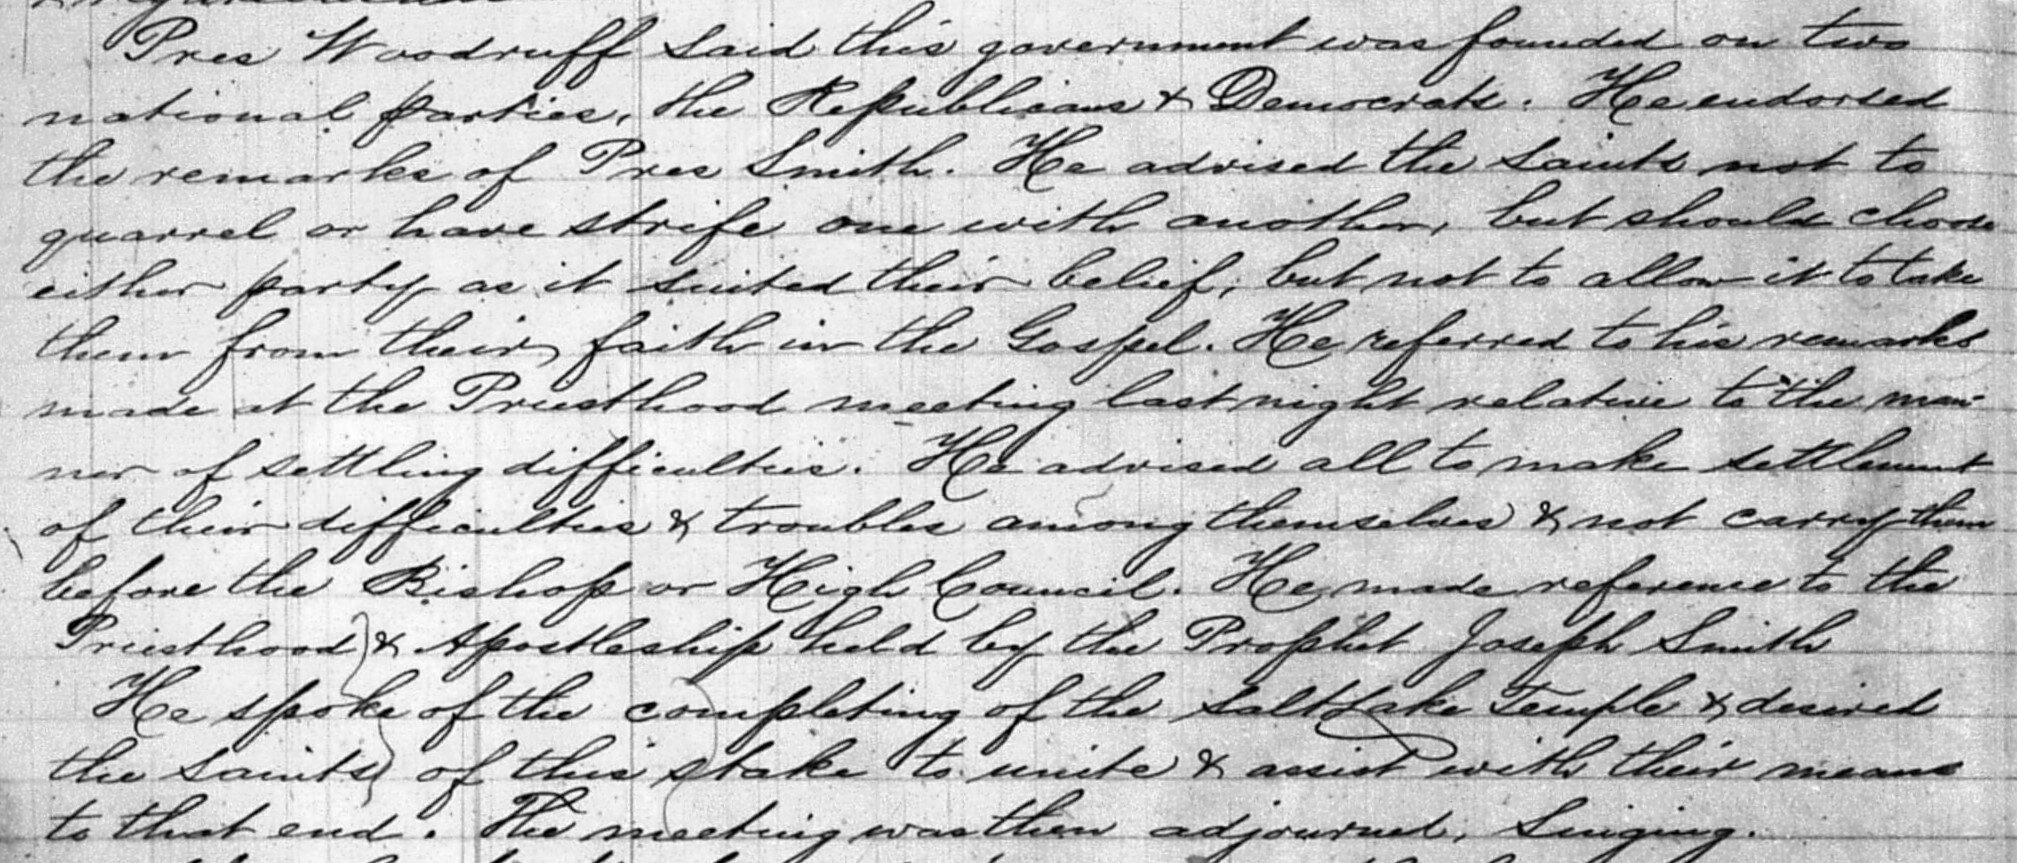 Pres Woodruff said this government was founded on two
national parties, the Republicans & Democrats. He endorsed
the remarks of Pres Smith. He advised the Saints not to
quarrel or have strife one with another, but should choose
either party as it suited their belief, but not to allow it to take
them from their faith in the Gospel. He referred to his remarks
made at the Priesthood meeting last night relative to the man-
ner of settling difficulties. He advised all to make settlement
of their difficulties & troubles among themselves & not carry them
before the Bishop or High Council. He made reference to the
Priesthood & Apostleship held by the Prophet Joseph Smith
He spoke of the completing of the Salt Lake Temple & desired
the Saints of this stake to unite & assist with their means
to that end. The meeting was then adjourned, Singing.